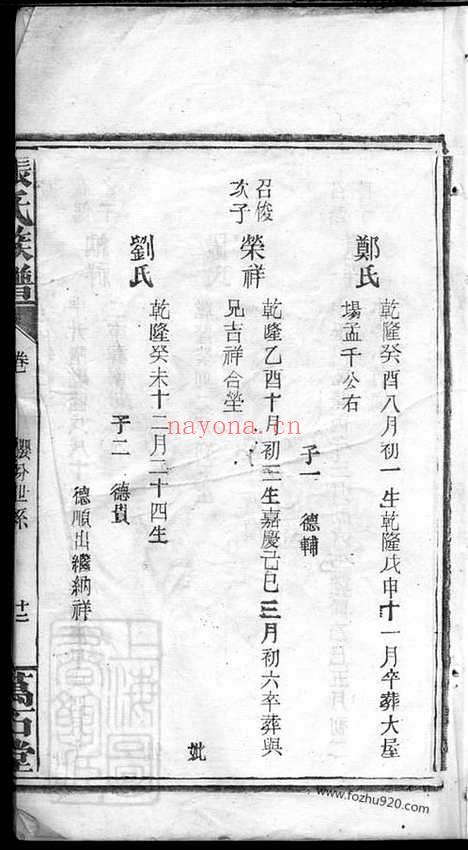 鄭氏
乾隆癸酉八月初一生乾隆戊申十一月卒葬大屋
場孟千公右
子一 德輔
召俊
次子
榮祥
乾隆乙酉十月初三生嘉慶己巳三月初六卒葬與
兄吉祥合塋
妣
劉氏
乾隆癸未十二月二十四生
子二 德貴
德順出繼納祥
張氏族譜
卷
世系
十二
堂
nayona.cn
www.fozhu920.com